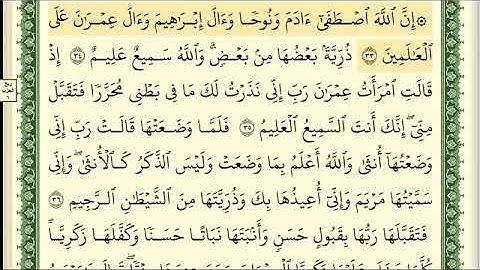 ۞ إِنَّ ٱللَّهَ ٱصۡطَفَىٰٓ ءَادَمَ وَنُوحٗا وَءَالَ إِبۡرَٰهِيمَ وَءَالَ عِمۡرَٰنَ عَلَى
ٱلۡعَٰلَمِينَ ٣٣ ذُرِّيَّةَۢ بَعۡضُهَا مِنۢ بَعۡضٖۗ وَٱللَّهُ سَمِيعٌ عَلِيمٌ ٣٤ إِذۡ
قَالَتِ ٱمۡرَأَتُ عِمۡرَٰنَ رَبِّ إِنِّي نَذَرۡتُ لَكَ مَا فِي بَطۡنِي مُحَرَّرٗا فَتَقَبَّلۡ
مِنِّيٓۖ إِنَّكَ أَنتَ ٱلسَّمِيعُ ٱلۡعَلِيمُ ٣٥ فَلَمَّا وَضَعَتۡهَا قَالَتۡ رَبِّ إِنِّي
وَضَعۡتُهَآ أُنثَىٰ وَٱللَّهُ أَعۡلَمُ بِمَا وَضَعَتۡ وَلَيۡسَ ٱلذَّكَرُ كَٱلۡأُنثَىٰۖ وَإِنِّي
سَمَّيۡتُهَا مَرۡيَمَ وَإِنِّيٓ أُعِيذُهَا بِكَ وَذُرِّيَّتَهَا مِنَ ٱلشَّيۡطَٰنِ ٱلرَّجِيمِ ٣٦
فَتَقَبَّلَهَا رَبُّهَا بِقَبُولٍ حَسَنٖ وَأَنۢبَتَهَا نَبَاتًا حَسَنٗا وَكَفَّلَهَا زَكَرِيَّاۖ